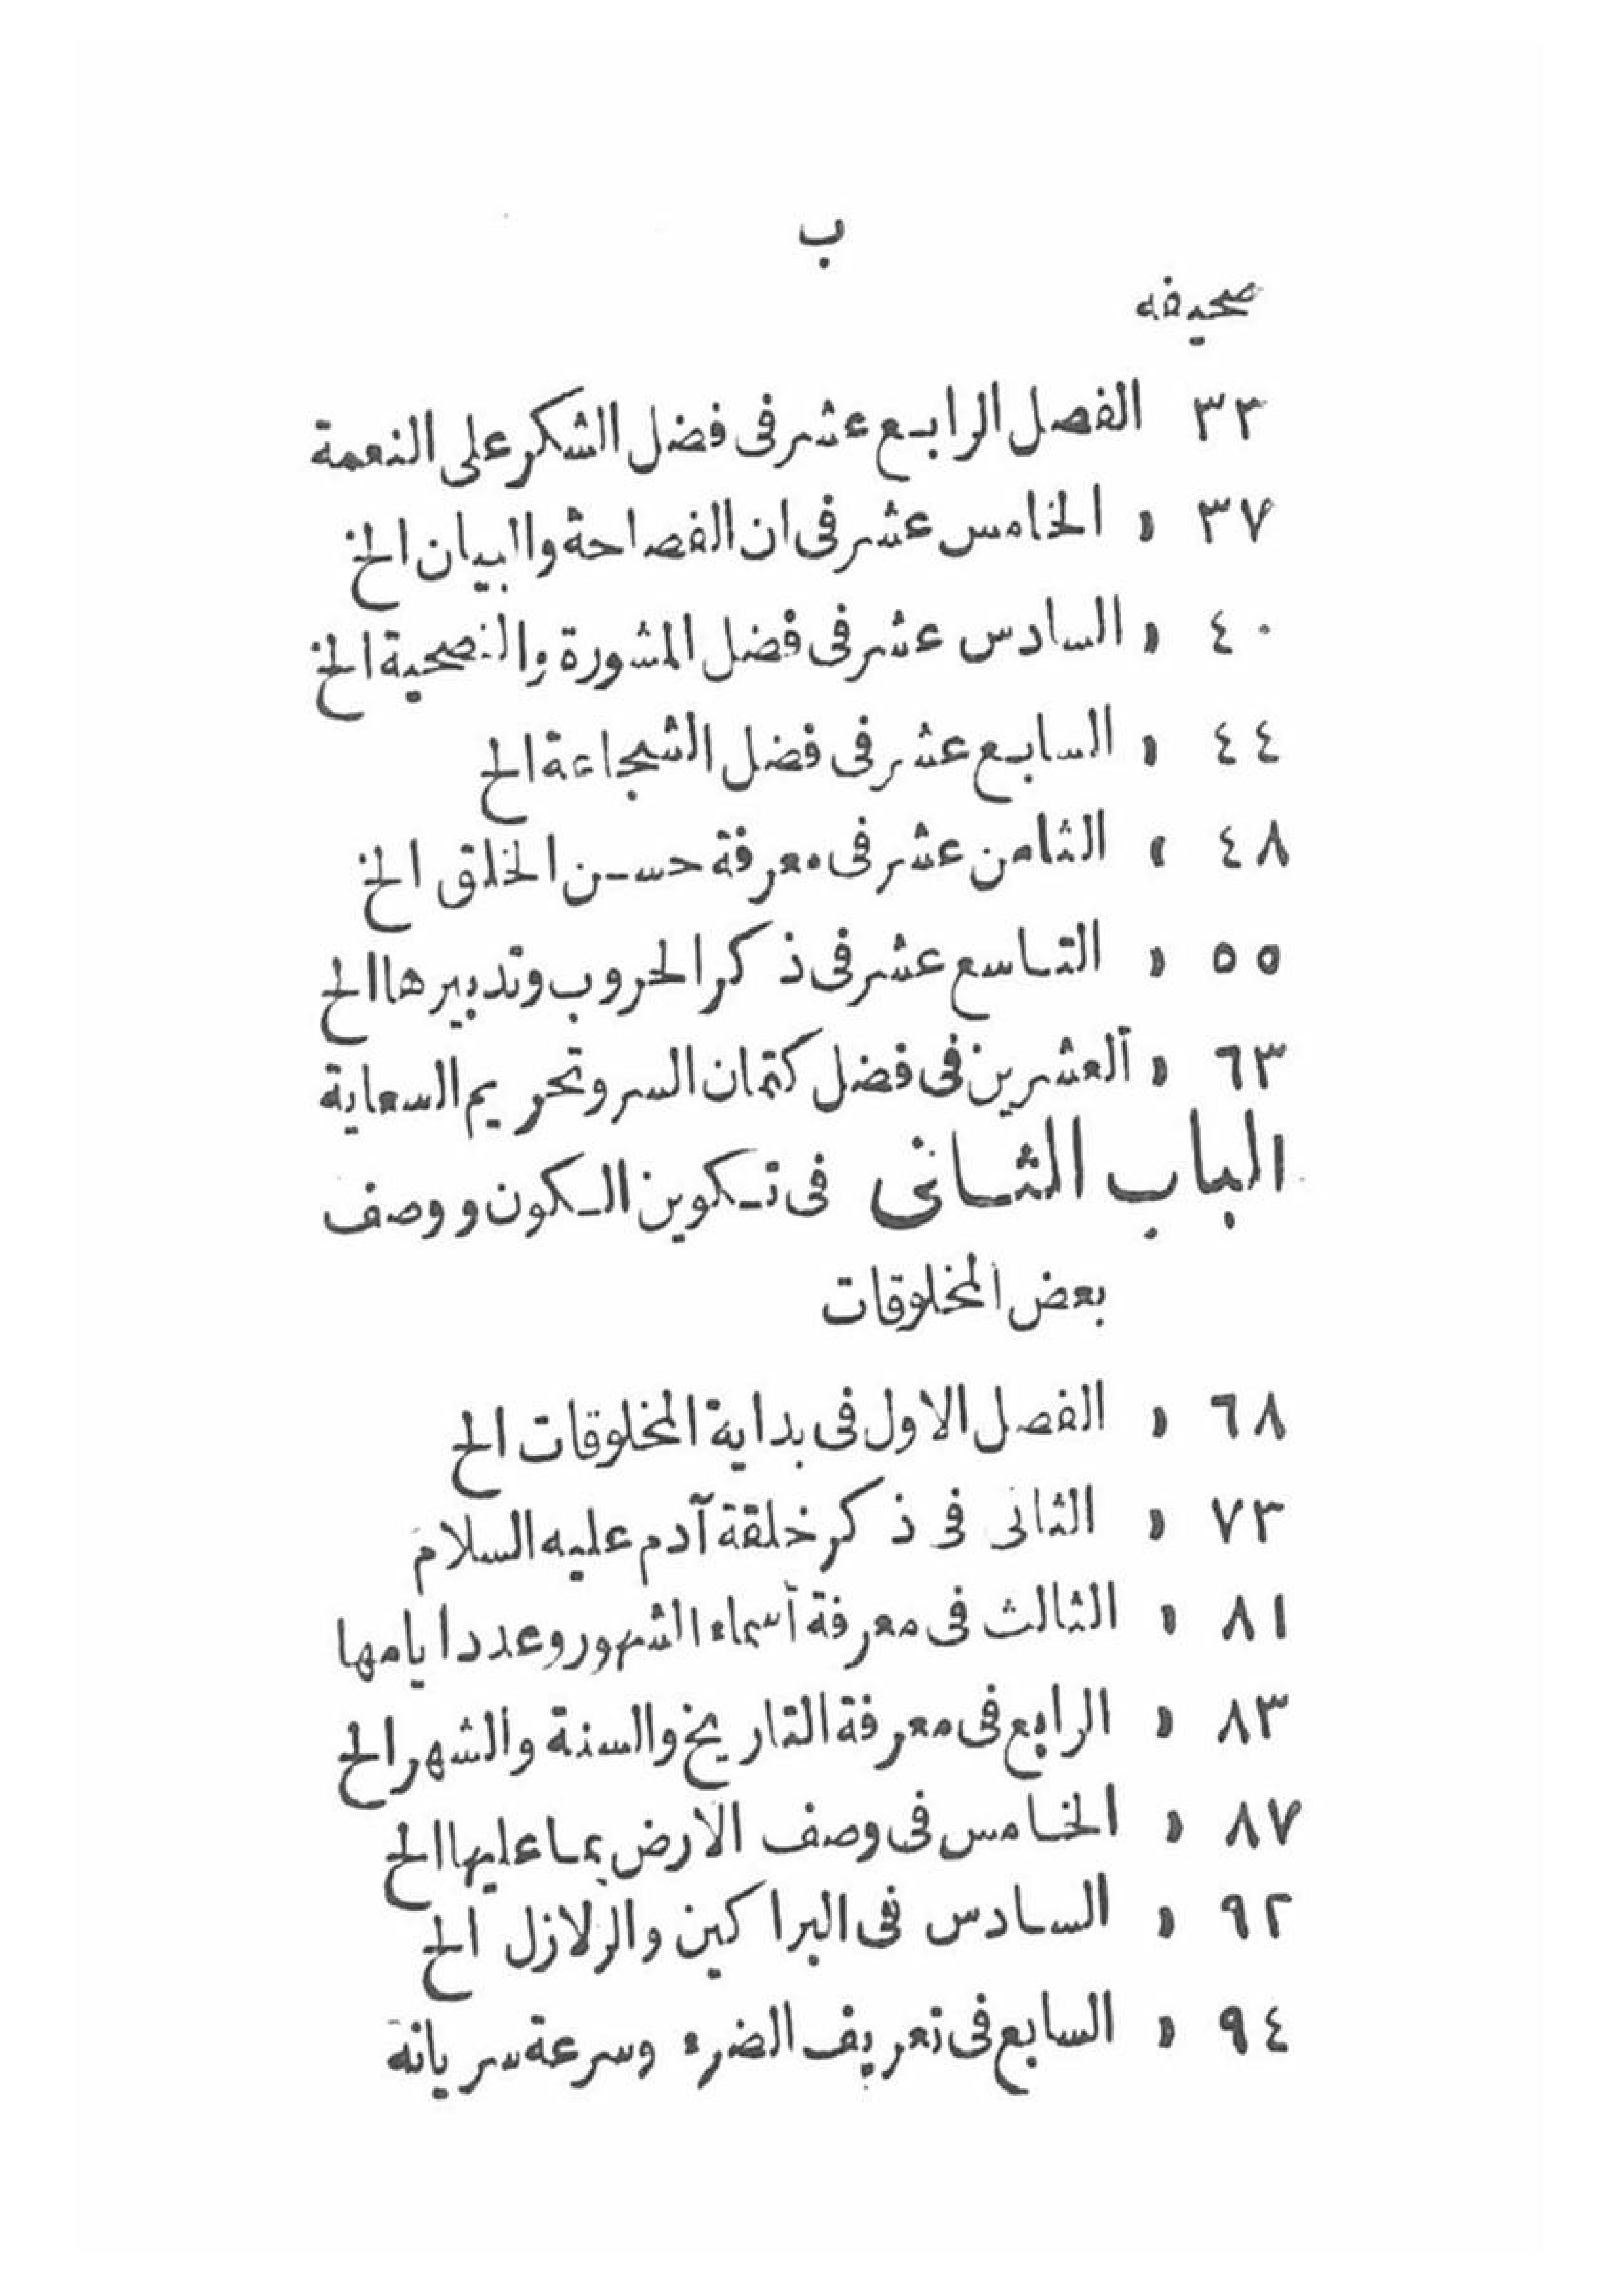 ب
صحيفه
٣٣ الفصل الرابع عشر فى فضل الشكر على النعمة
٣٧ » الخامس عشر فى ان الفصاحة والبيان الخ
٤٠ » السادس عشر فى فضل المشورة والنصحية الخ
٤٤ » السابع عشر فى فضل الشجاعة الخ
٤٨ » الثامن عشر فى معرفة حسن الخلق الخ
٥٥ » التاسع عشر فى ذكر الحروب وتدبيرها الخ
٦٣ » ألعشرين فى فضل كتمان السر وتحريم السعاية
الباب الثانى فى تكوين الكون ووصف
بعض المخلوقات
٦٨ » الفصل الاول فى بداية المخلوقات الخ
٧٣ » الثانى فى ذكر خلقة آدم عليه السلام
٨١ » الثالث فى معرفة أسماء الشهور وعدد ايامها
٨٣ » الرابع فى معرفة التاريخ والسنة والشهر الخ
٨٧ » الخامس فى وصف الارض بما عليها الخ
٩٢ » السادس فى البراكين والزلازل الخ
٩٤ » السابع فى تعريف الضوء وسرعة سريانه